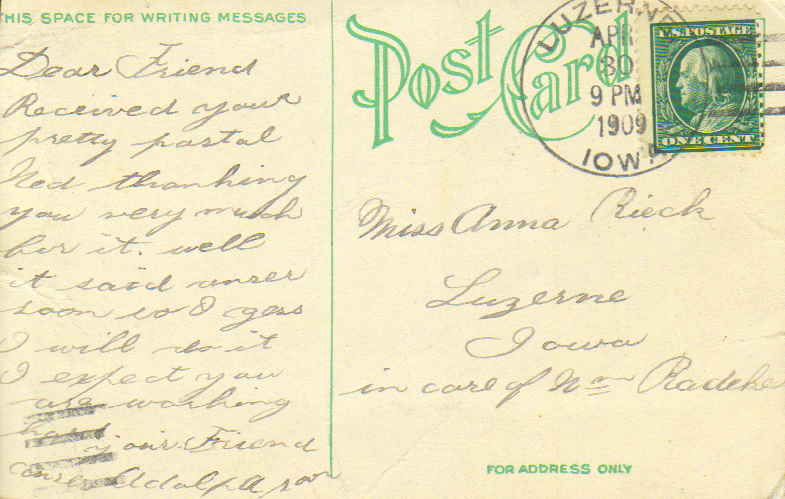 THIS SPACE FOR WRITING MESSAGES
Dear Friend
Received your
pretty postal
Wed thanking
you very much
for it. well
it said anser
soon so I gess
I will do it
I expect you
are working
hard
your Friend
Adolph
Post Card
LUZERNE
APR
30
9 PM
1909
IOWA
U.S. POSTAGE
ONE CENT
Miss Anna Rieck
Luzerne
Iowa
in care of Wm Radeke
FOR ADDRESS ONLY